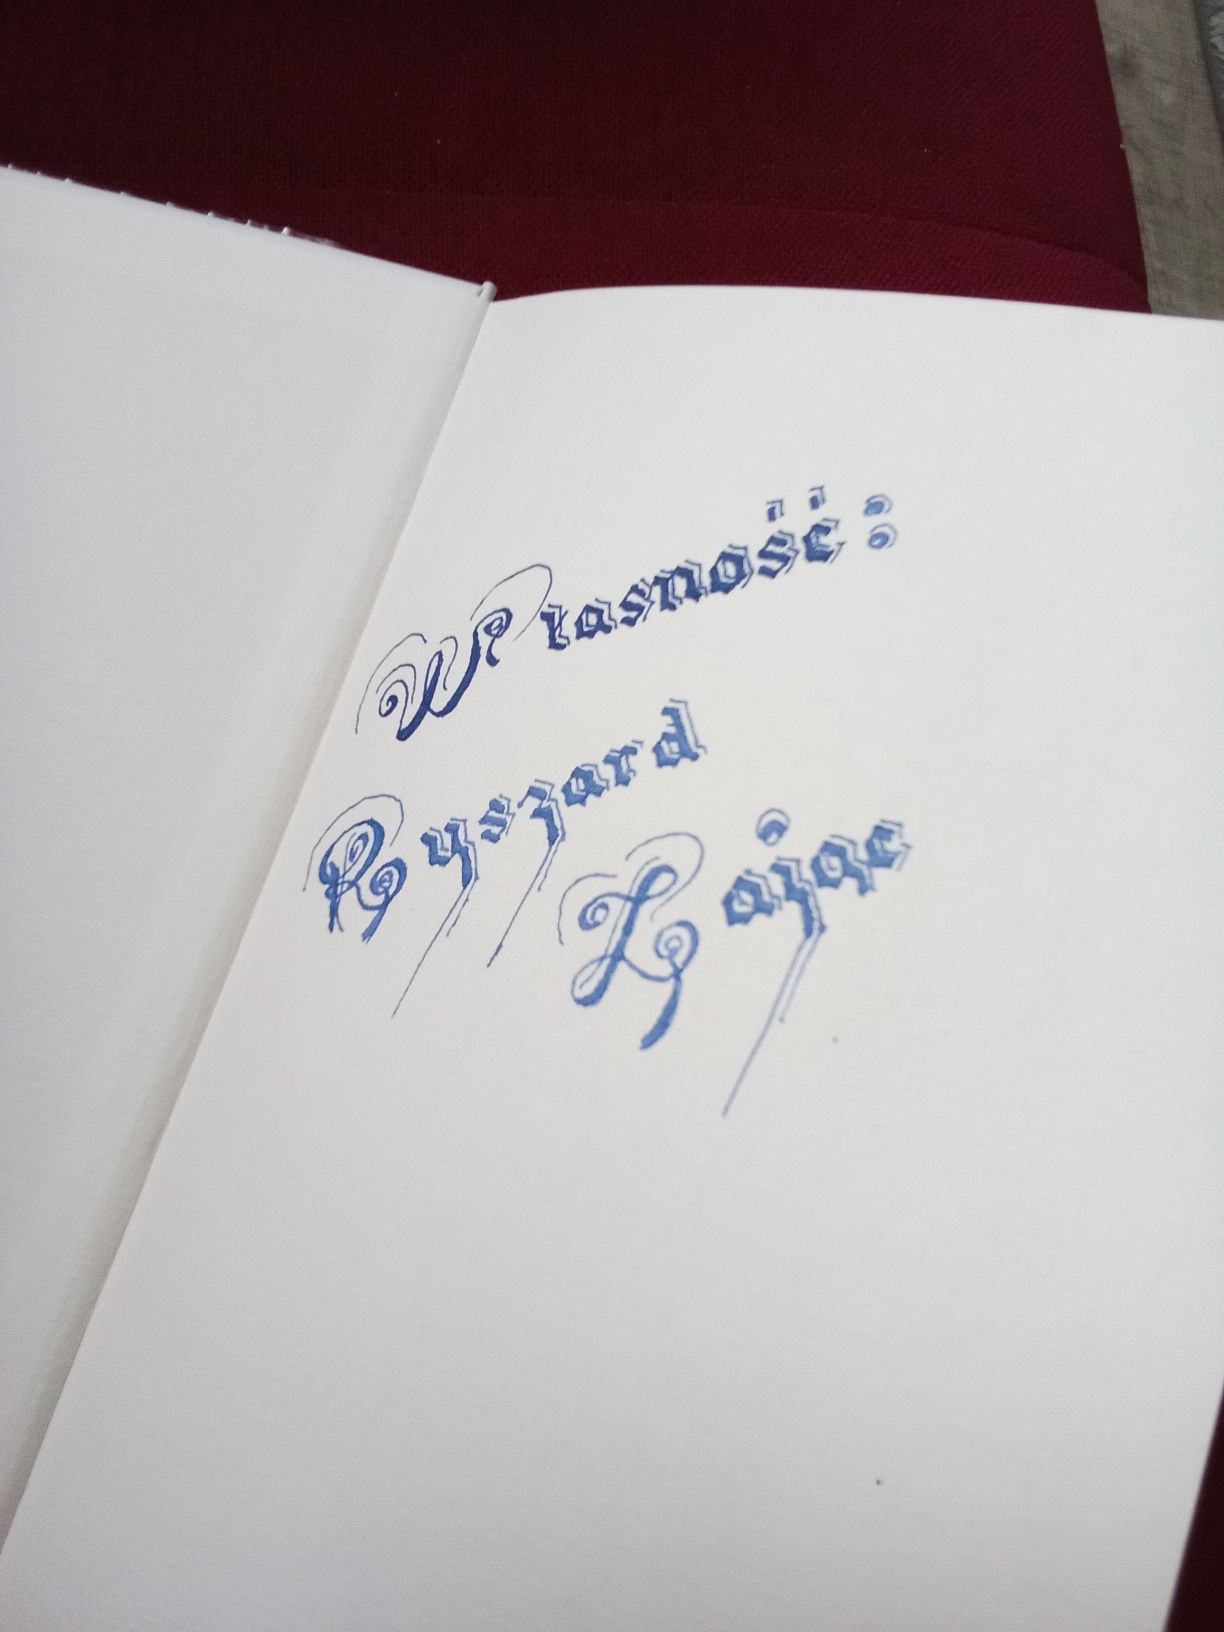 Własność:
Ryszard
Zając